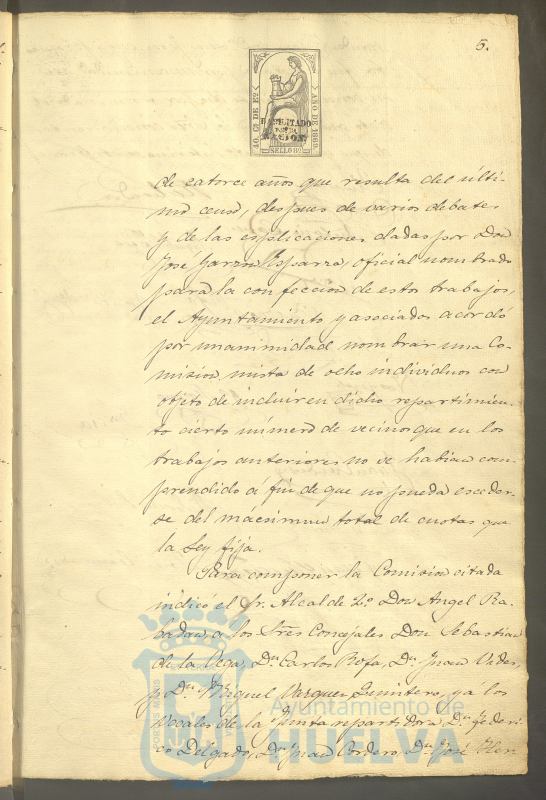 5.
40. Cs DE Eo
AÑO DE 1869.
HABILITADO
POR LA
NACION.
SELLO 9o
de catorce años que resulta del ulti-
mo censo, despues de varios debates
y de las esplicaciones dadas por Don
José Garzon Esparza, oficial nombrado
para la confeccion de estos trabajos,
el Ayuntamiento y asociados acordó
por unanimidad nombrar una Co-
mision mista de ocho individuos con
objeto de incluir en dicho repartimien-
to cierto número de vecinos que en los
trabajos anteriores no se habian com-
prendido á fin de que no pueda esceder-
se del macsimun total de cuotas que
la Ley fija.
Para componer la Comision citada
indicó el Sr. Alcalde 2o Don Angel Ra-
badan, a los Sres Concejales Don Sebastian
de la Vega, Dn Carlos Dn Juan
y Dn Miguel Vazquez Quintero, y a los
Vocales de la Junta repartidora Dn Federi-
co Delgado, Dn Juan Cordero, Dn José Her
Ayuntamiento de
HUELVA
PORTUS MARIS